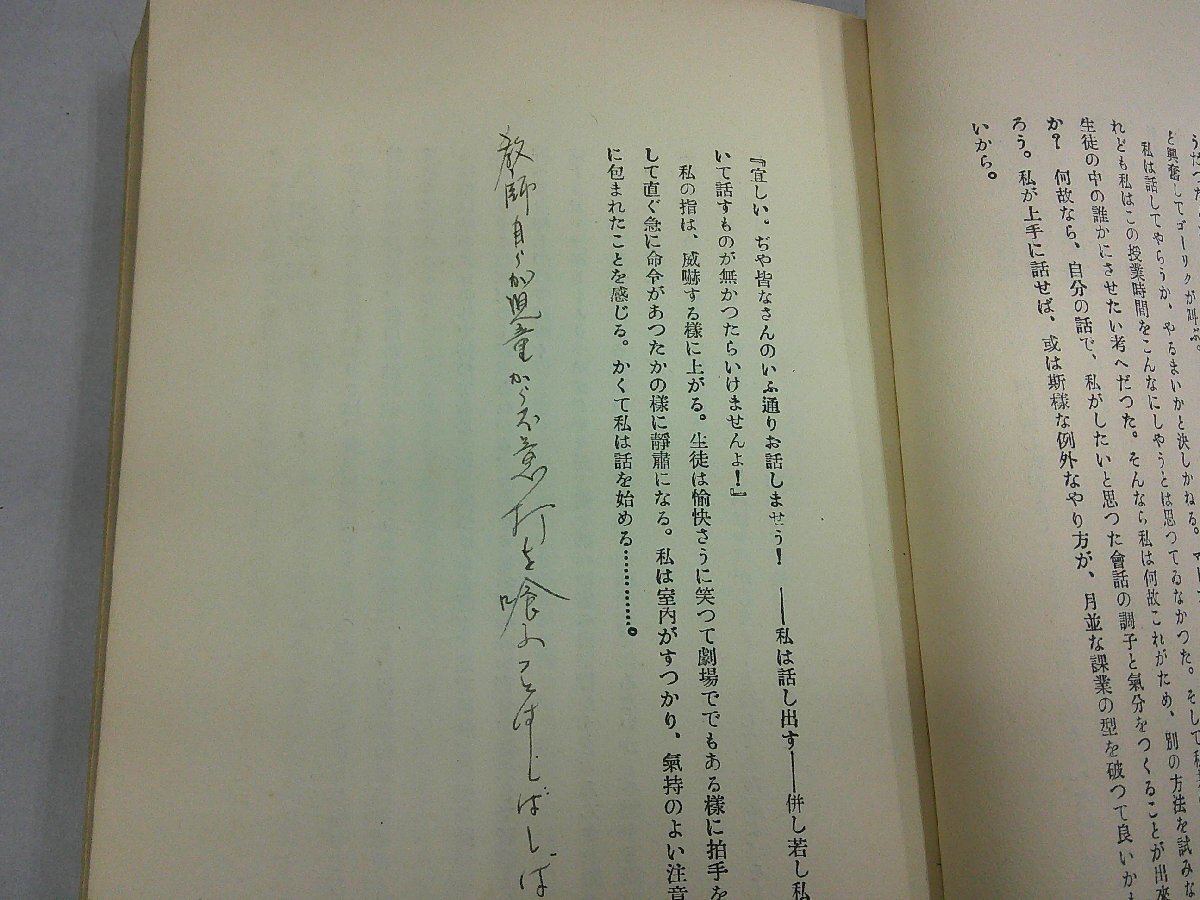 と興奮してゴーリクが叫ぶ。
私は話してやらうか、やるまいかと決しかねる。
れども私はこの授業時間をこんなにしやうとは思つてゐなかつた。そして
生徒の中の誰かにさせたい考へだつた。そんなら私は何故これがため、別の方法を試みな
か？　何故なら、自分の話で、私がしたいと思つた會話の調子と氣分をつくることが出來
ろう。私が上手に話せば、或は斯様な例外なやり方が、月並な課業の型を破つて良いかも
いから。
『宜しい。ぢや皆なさんのいふ通りお話しませう！　——私は話し出す——併し若し私
いて話すものが無かつたらいけませんよ！』
私の指は、威嚇する様に上がる。生徒は愉快さうに笑つて劇場ででもある様に拍手を
して直ぐ急に命令があつたかの様に靜肅になる。私は室内がすつかり、氣持のよい注意
に包まれたことを感じる。かくて私は話を始める…………。
教師自らが児童から不意打を喰ふことはしばしば